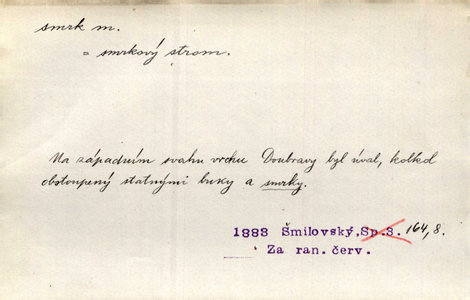 smrk m.
= smrkový strom.
Na západním svahu vrchu Doubravy byl úval, kolkol
obstoupený statnými buky a smrky.
1883 Šmilovský, Sp. 3. 164, 8.
Za ran. červ.